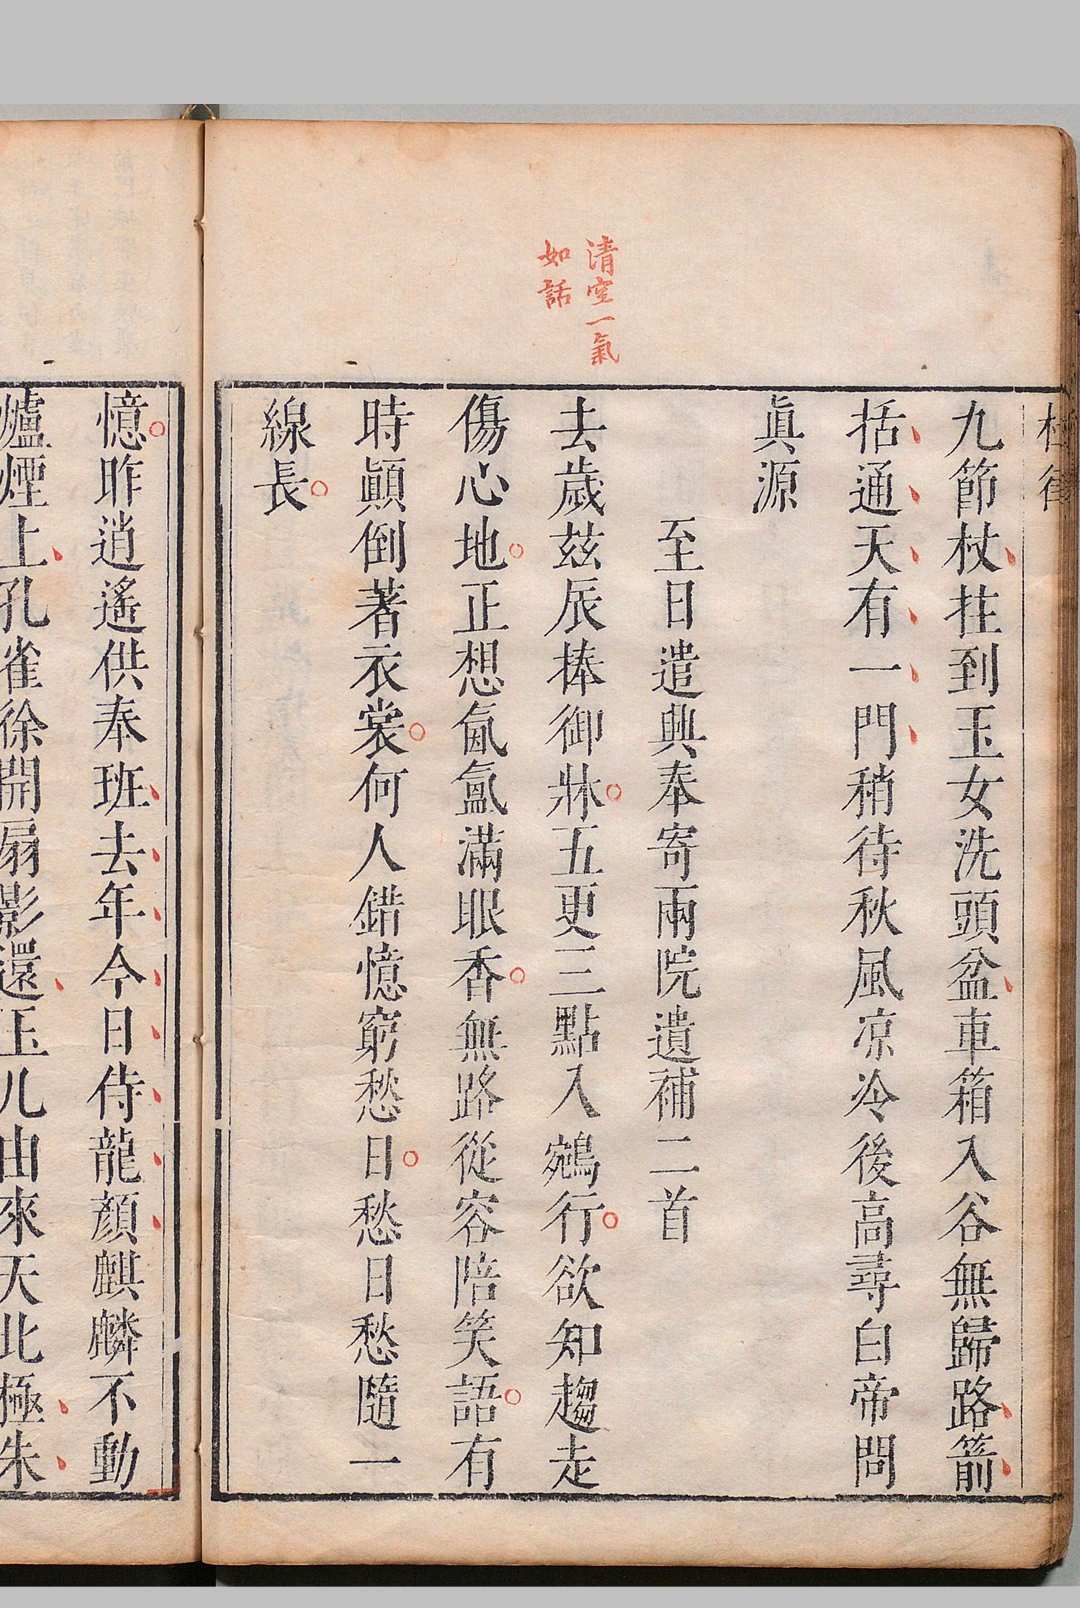 清空一氣
如話
杜律
九節杖拄到玉女洗頭盆車箱入谷無歸路箭
括通天有一門稍待秋風凉冷後高尋白帝問
眞源
至日遣興奉寄兩院遺補二首
去歲茲辰捧御牀五更三點入鵷行欲知趨走
傷心地正想氤氳滿眼香無路從容陪笑語有
時顚倒著衣裳何人錯憶窮愁日愁日愁隨一
線長
憶昨逍遙供奉班去年今日侍龍顏麒麟不動
爐煙上孔雀徐開扇影還玉几由來天北極朱